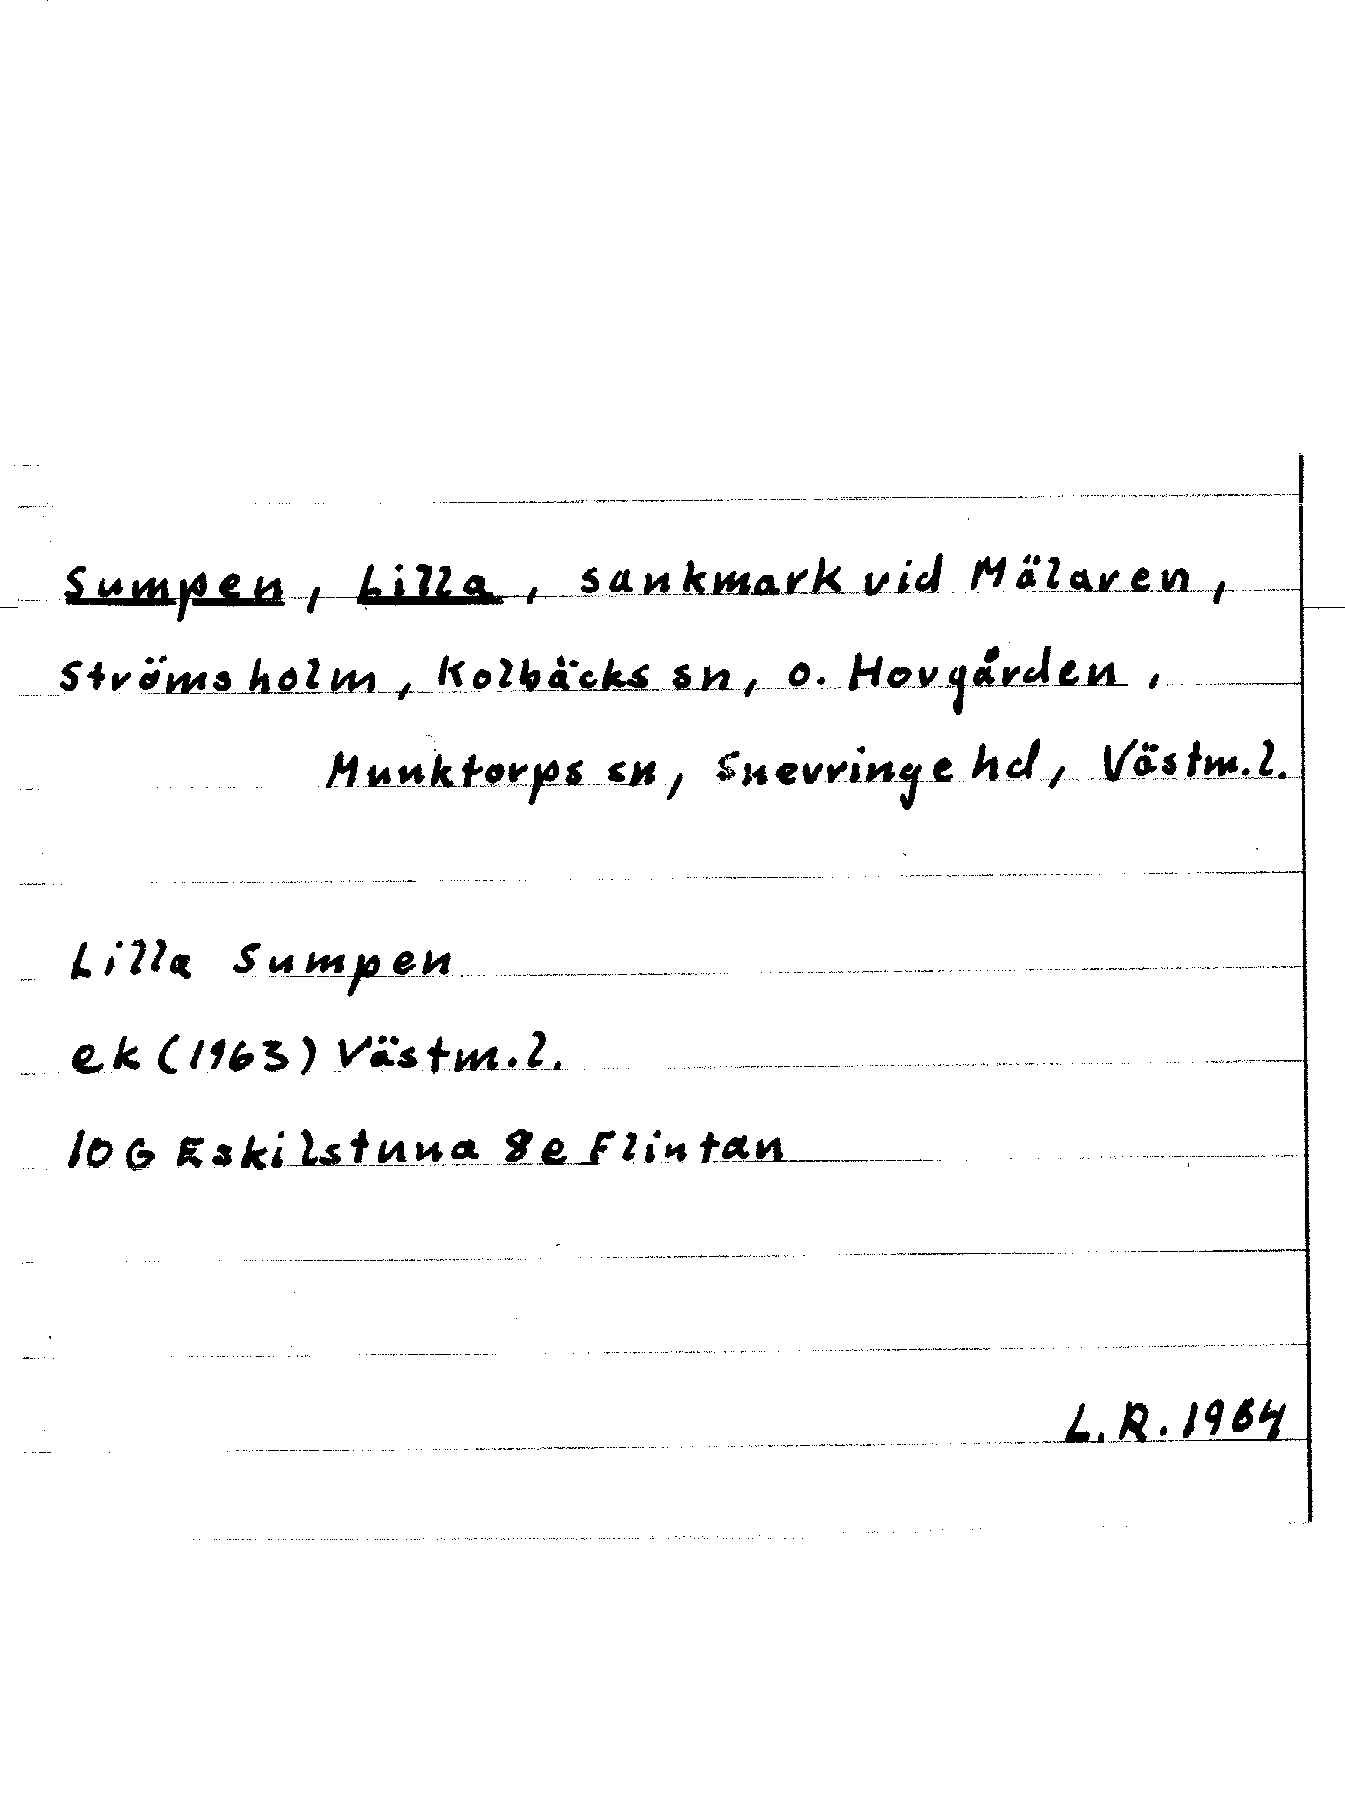 Sumpen, Lilla, sankmark vid Mälaren,
Strömsholm, Kolbäcks sn, o. Hovgården,
Munktorps sn, Snevringe hd, Västm.l.
Lilla Sumpen
ek (1963) Västm.l.
10 G Eskilstuna 8e Flintan
L.R. 1964